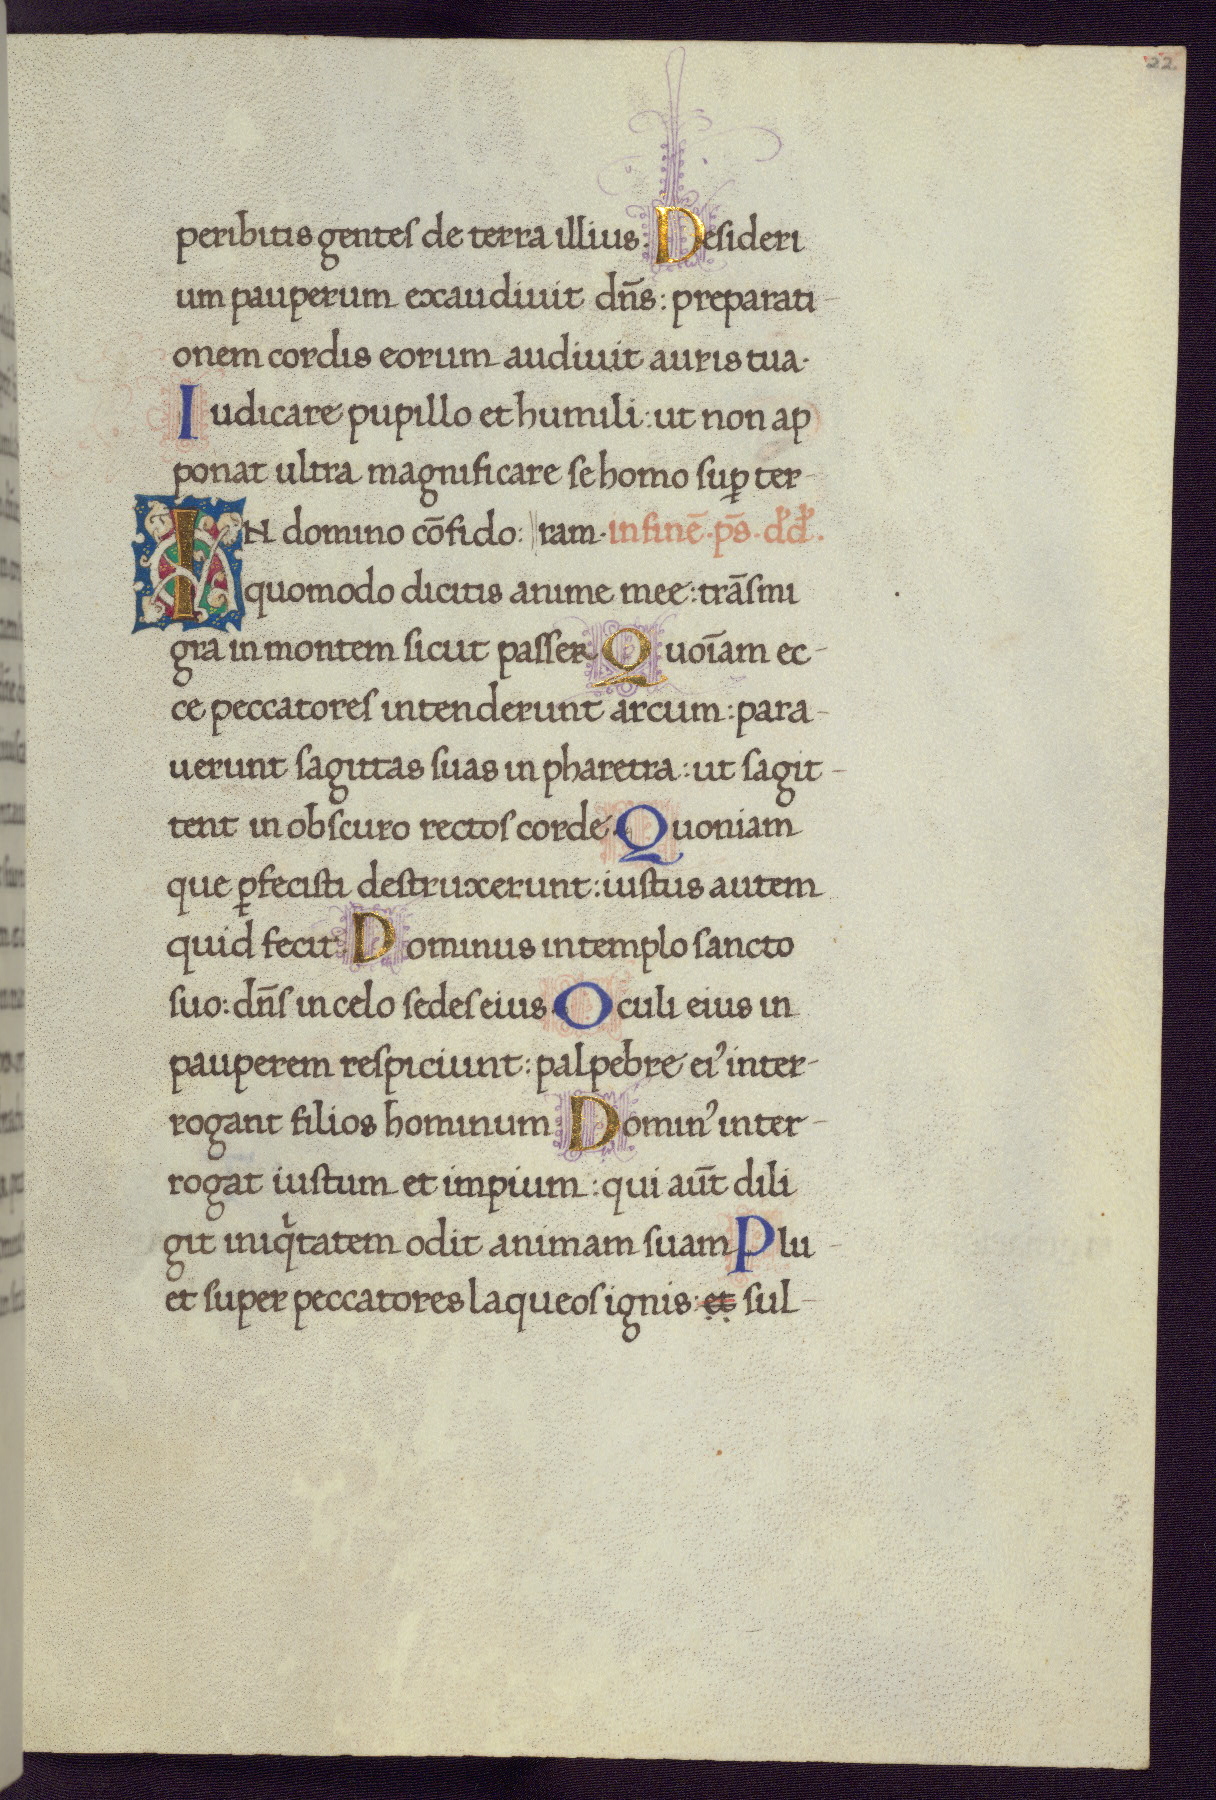 22.
peribitis gentes de terra illius: Desideri
um pauperum exaudiuit dn̄s: preparati-
onem cordis eorum audiuit auris tua.
Iudicare pupillo et humili: ut non ap
ponat ultra magnificare se homo suꝑ ter-
IN domino cōfido: ram. in finē. ps̄. dd̓.
quomodo dicitis anime mee: trāsmi
gra in montem sicut passer. Quoīam ec-
ce peccatores intenderunt arcum: para-
uerunt sagittas suas in pharetra: ut sagit-
tent in obscuro rectos corde. Quoniam
que ꝑfecisti destruxerunt: iustus autem
quid fecit: Dominus in templo sancto
suo: dn̄s in celo sedes eius. Oculi eius in
pauperem respiciunt: palpebre eiꝰ inter-
rogant filios hominum. Dominꝰ inter-
rogat iustum et impium: qui aut̄ dili
git iniqͥtatem odit animam suam. Plu-
et super peccatores laqueos ignis: et sul-